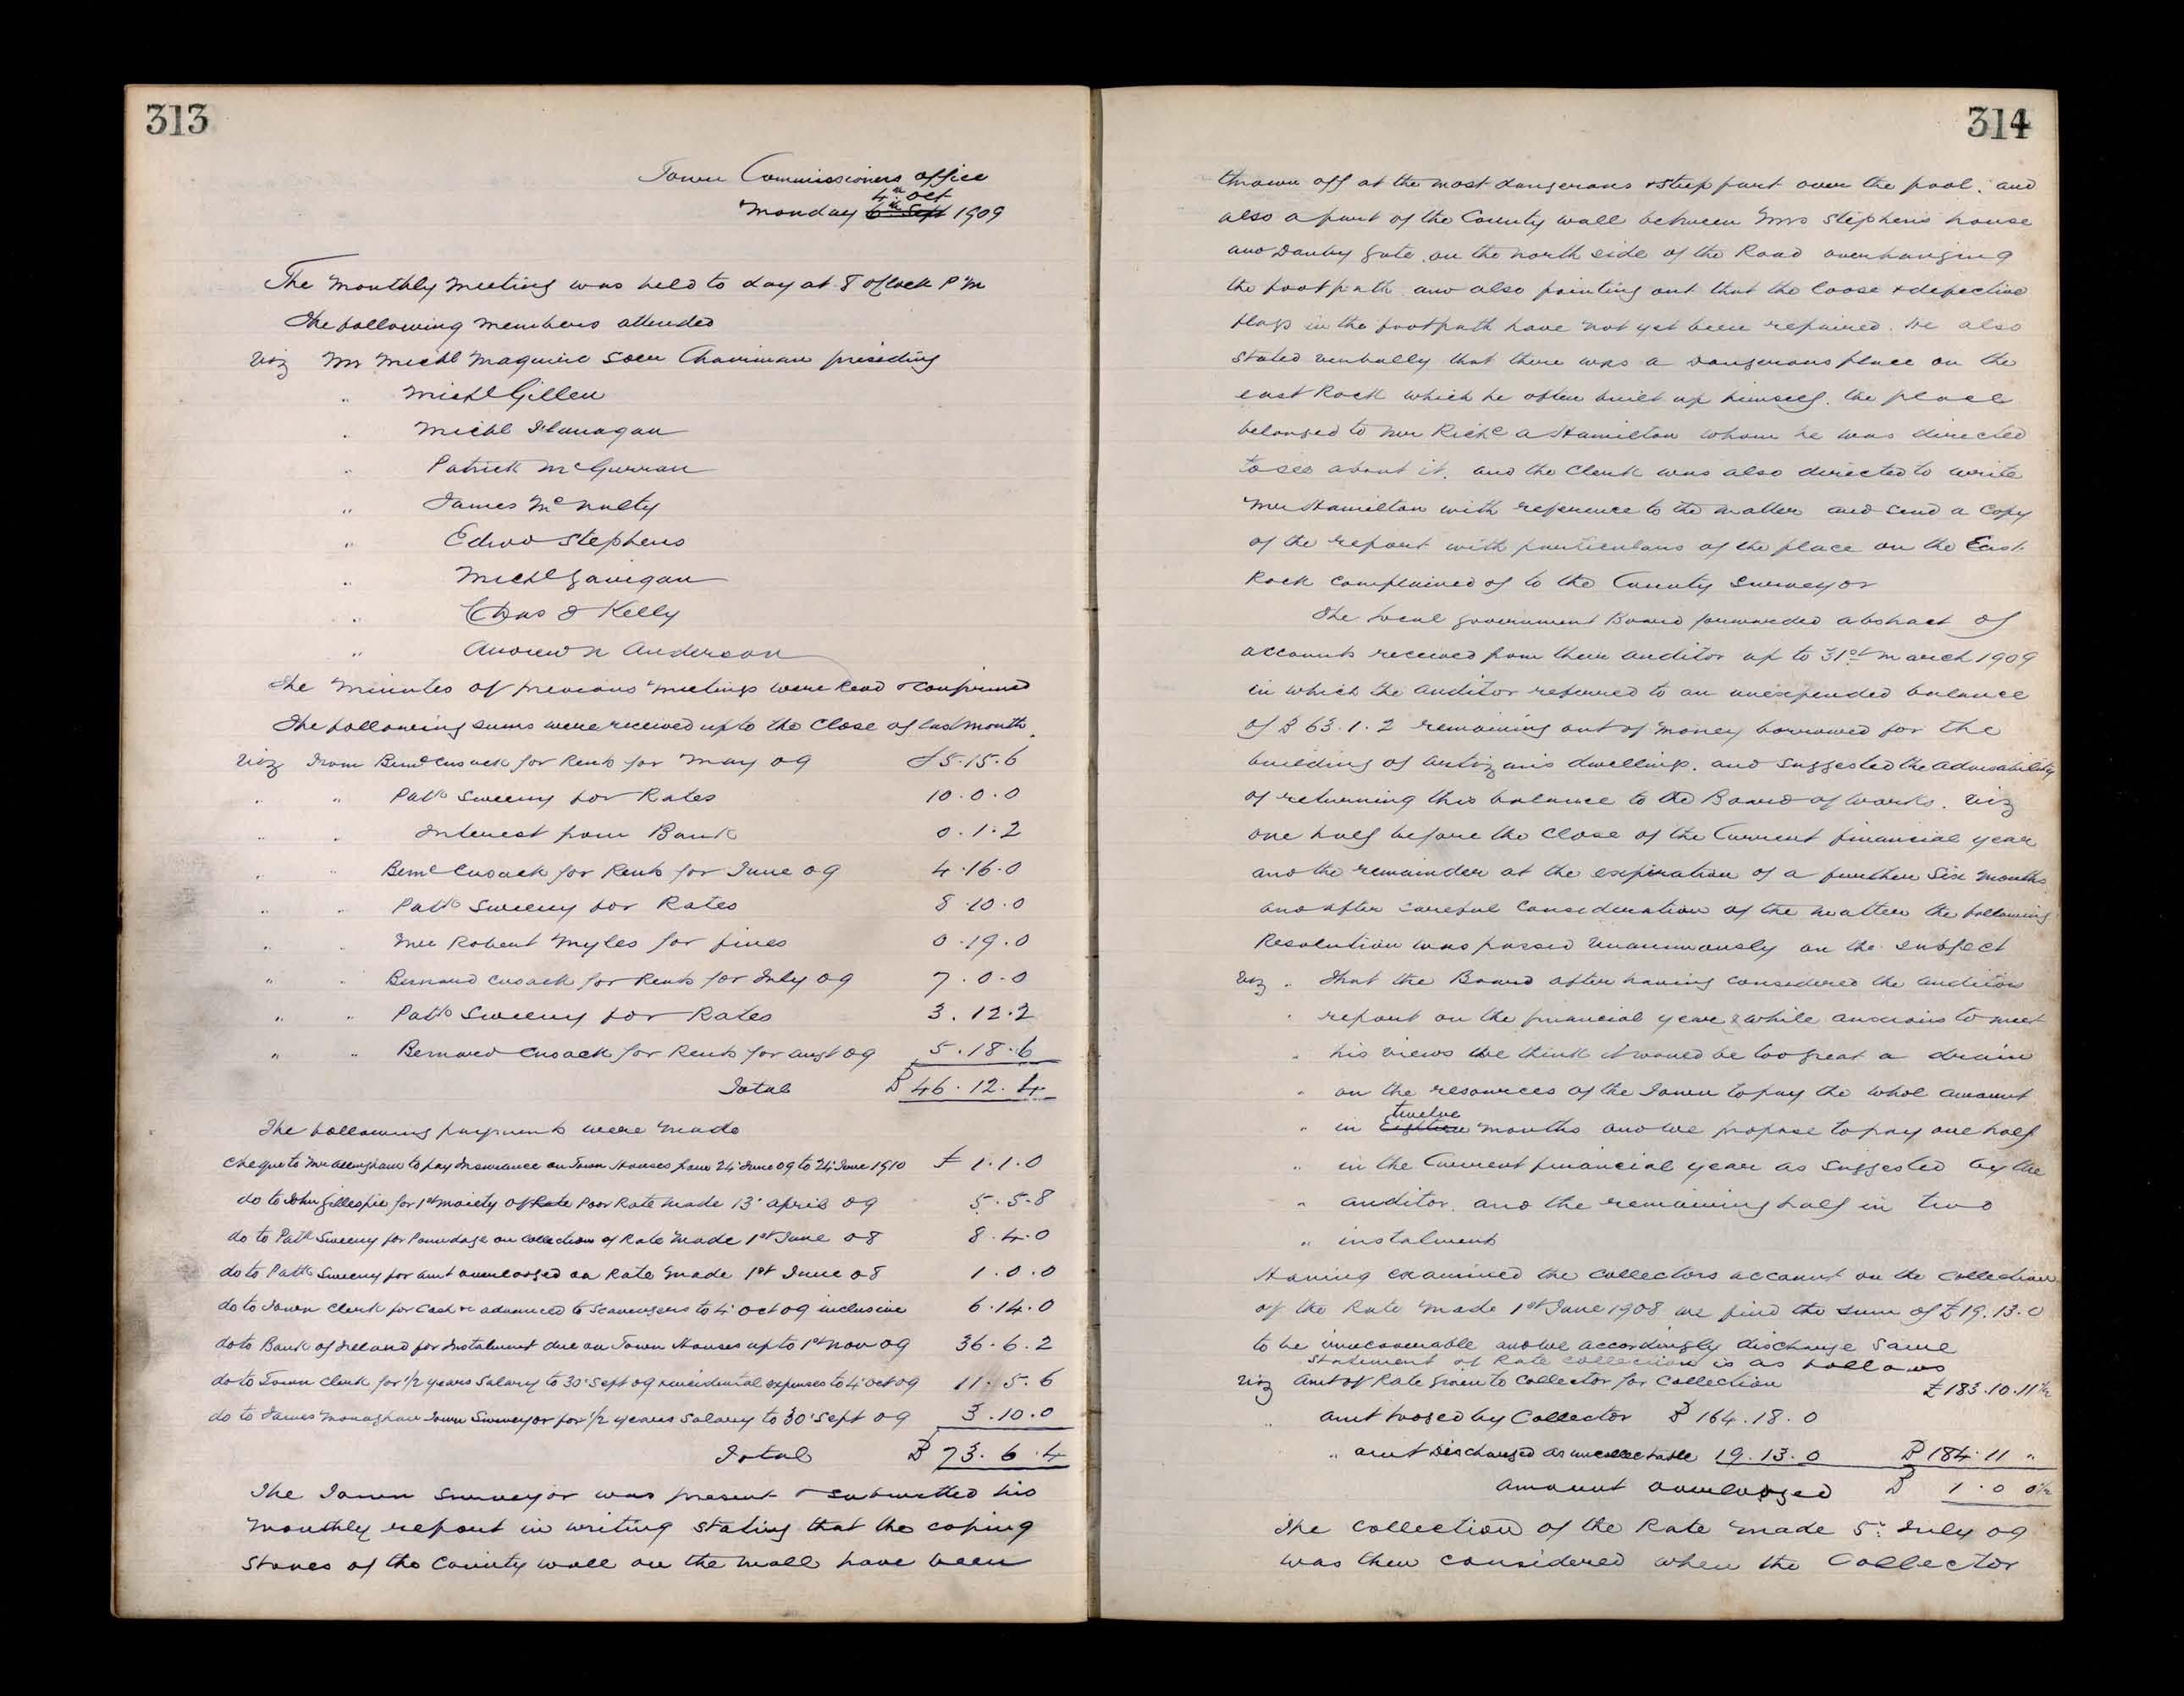 313
Town Commissioners office
4th Oct
Monday 6th Sept 1909
The Monthly Meeting was held to day at 8 oClock P M
The following Members attended
Viz Mr Michl Maguire Senr Chairman presiding
" Michl Gillen
" Michl Flanagan
" Patrick McGurran
" James McNulty
" Edwd Stephens
" Michl Gavigan
" Chas J Kelly
" Andrew N Anderson
The Minutes of previous Meetings were Read & Confirmed
The following sums were received up to the Close of last Month
Viz From Bernd Cusack for Rents for May 09 £5.15.6
" " Patk Sweeny for Rates 10.0.0
" " Interest from Bank 0.1.2
" " Bernd Cusack for Rents for June 09 4.16.0
" " Patk Sweeny for Rates 8.10.0
" " Mr Robert Myles for fines 0.19.0
" " Bernard Cusack for Rents for July 09 7.0.0
" " Patk Sweeny for Rates 3.12.2
" " Bernard Cusack for Rents for Augt 09 5.18.6
Total £46.12.4
The following payments were Made
Cheque to Mr Allingham to pay Insurance on Town Houses from 24 June 09 to 24 June 1910 £1.1.0
do to John Gillespie for 1st Moiety of Rate Poor Rate Made 13 April 09 5.5.8
do to Patk Sweeny for Poundage on Collection of Rate Made 1st June 08 8.4.0
do to Patk Sweeny for amt overlodged on Rate Made 1st June 08 1.0.0
do to Town Clerk for Cash &c advanced to Scavengers to 4 Oct 09 inclusive 6.14.0
do to Bank of Ireland for Instalment due on Town Houses up to 1st Nov 09 36.6.2
do to Town Clerk for 1/2 years Salary to 30 Sept 09 & incidental expenses to 4 Oct 09 11.5.6
do to James Monaghan Town Surveyor for 1/2 years Salary to 30 Sept 09 3.10.0
Total £73.6.4
The Town Surveyor was present & submitted his
Monthly report in writing stating that the coping
stones of the County wall on the Mall have been
314
thrown off at the most dangerous & steep part over the pool, and
also a part of the County wall between Mrs Stephens house
and Danby gate on the North side of the Road overhanging
the footpath and also pointing out that the loose & defective
flags in the footpath have not yet been repaired. He also
stated verbally that there was a dangerous place on the
east Rock which he often built up himself, the place
belonged to Mr Richd A Hamilton whom he was directed
to see about it, and the Clerk was also directed to write
Mr Hamilton with reference to the matter and send a Copy
of the report with particulars of the place on the East
Rock complained of to the County Surveyor
The Local Government Board forwarded abstract of
accounts received from their auditor up to 31st March 1909
in which the auditor referred to an unexpended balance
of £63.1.2 remaining out of Money borrowed for the
building of artizans dwellings, and suggested the advisability
of returning this balance to the Board of Works. Viz
one half before the Close of the Current financial year
and the remainder at the expiration of a further Six Months
and after careful Consideration of the Matter the following
Resolution was passed unanimously on the subject
Viz " That the Board after having considered the auditors
" report on the financial year & while anxious to meet
" his views We think it would be too great a drain
" on the resources of the Town to pay the whole amount
twelve
" in Eighteen Months and we propose to pay one half
" in the Current financial year as suggested by the
" auditor, and the remaining half in two
" instalments
Having examined the Collectors account on the Collection
of the Rate Made 1st June 1908 we find the sum of £19.13.0
to be irrecoverable and we accordingly discharge Same
Statement of Rate collection is as follows
Viz Amt of Rate given to Collector for Collection £183.10.11 1/2
" amt lodged by Collector £164.18.0
" amt Discharged as uncollectable 19.13.0 £184.11 "
Amount overlodged £1.0 0 1/2
The Collection of the Rate Made 5 July 09
was then considered when the Collector